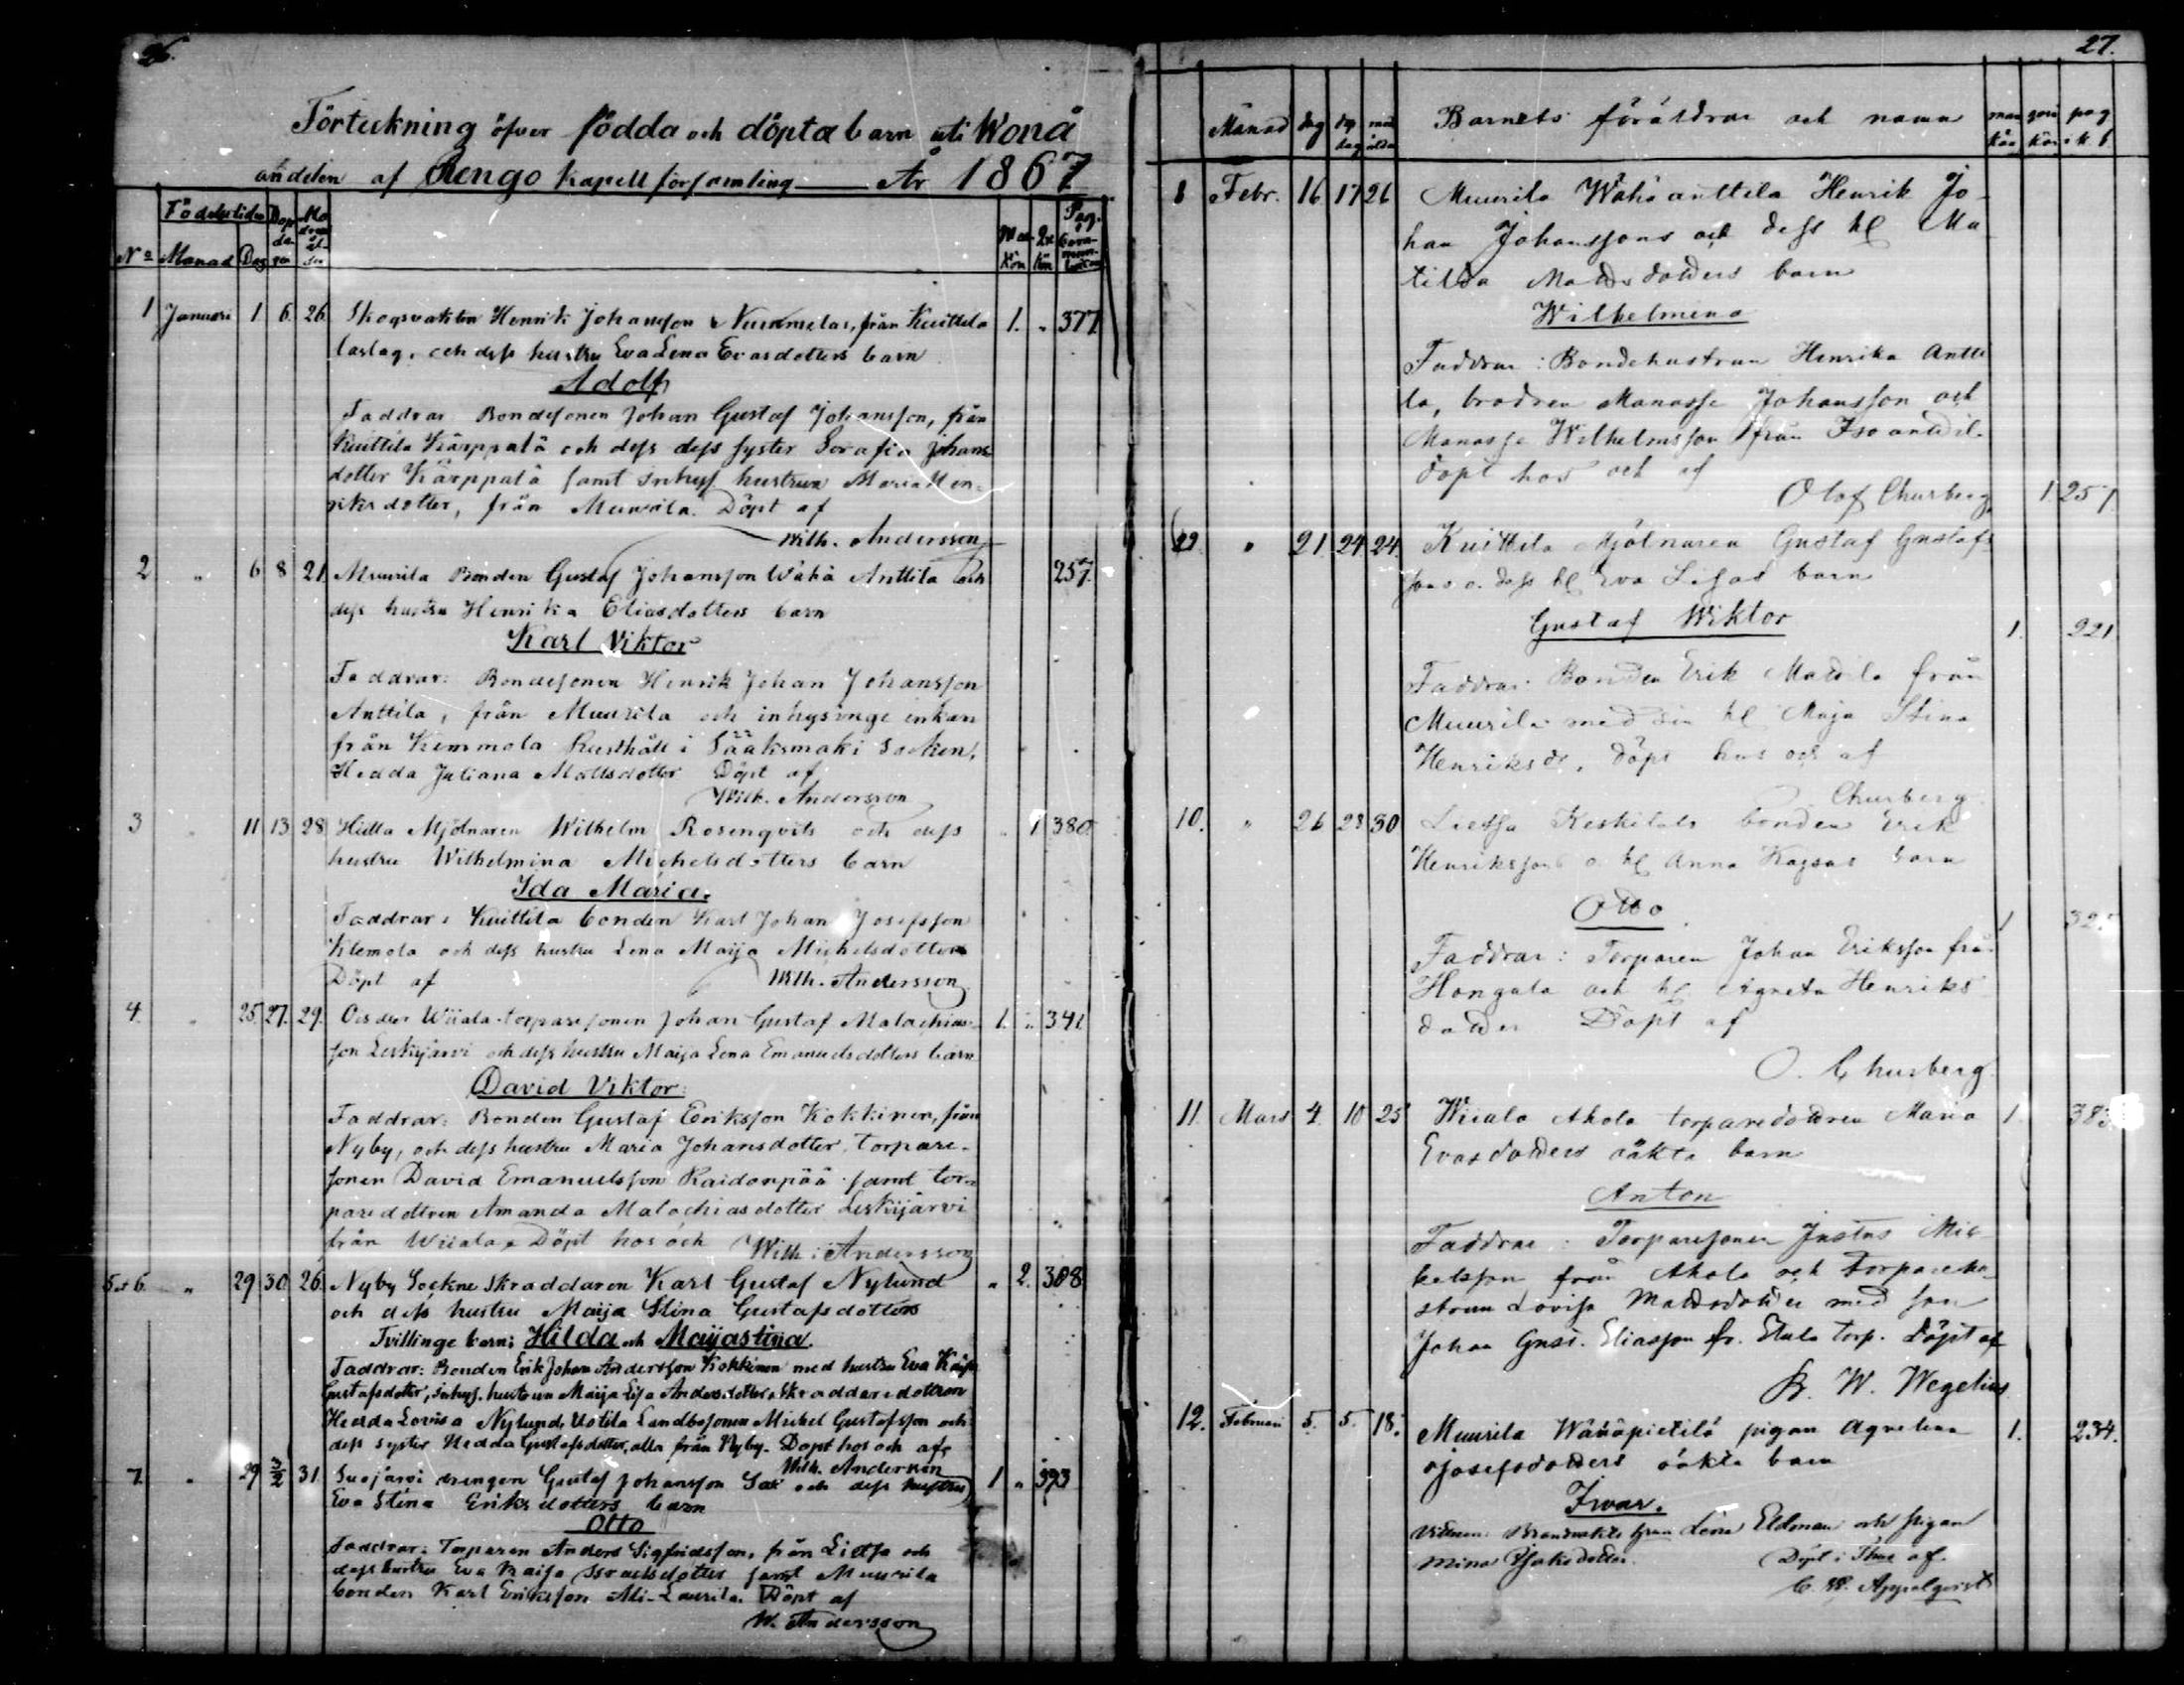 26.
Förteckning öfver födda och döpta barn uti Wonå
andelen af Rengo Kapellförsamling År 1867
Födelsetiden Döp
Nº Månad Dag Kön Kön
1 Januari 1 6 26 Skogsvakten Henrik Johansson Nummelas, från Kuittila 1. " 377
laslag, och dess hustru Eva Lena Evasdotters barn
Adolf
Faddrar Bondesonen Johan Gustaf Johansson, från
Kuittila Kärppälä och dess dess syster Serafia Johans
dotter Kärppälä samt inhys. hustrun Maria Hen=
riksdotter, från Muurila. Döpt af
Wilh. Andersson
2 " 6 8 21 Muurila Bonden Gustaf Johansson Wähä Anttila och 257.
dess hustru Henrika Eliasdotters barn
Karl Viktor
Faddrar: Bondesonen Henrik Johan Johansson
Anttila, från Muurila och inhysinge enkan
från Kemmola Rusthåll i Sääksmäki Socken,
Hedda Juliana Mattsdotter Döpt af
Wilh. Andersson
3 " 11 13 28 Mjölnaren Wilhelm Rosenqvists och dess " 1 380
hustru Wilhelmina Michelsdotters barn
Ida Maria.
Faddrar: Kuittila bonden Karl Johan Josefsson
Klemola och dess hustru Lena Maija Michelsdotter
Döpt af Wilh. Andersson
4. " 25. 27. 29. Wiiala torparesonen Johan Gustaf Malachias= 1. " 341
son Leskijärvi och dess hustru Maija Lena Emanuelsdotters barn
David Viktor.
Faddrar: Bonden Gustaf Eriksson Kokkinen, från
Nyby, och dess hustru Maria Johansdotter, torpare-
sonen David Emanuelsson Raidanpää samt tor=
paredottren Amanda Malachiasdotter Leskijärvi
från Wiiala. Döpt hos och Wilh. Andersson
5 et 6 " 29 30 26. Nyby Sockne Skräddaren Karl Gustaf Nylund " 2. 308
och dess hustru Maija Stina Gustafsdotters
Tvillinge barn: Hilda och Maijastina.
Faddrar: Bonden Erik Johan Andersson Kokkinen med hustru Eva Kaisa
Gustafsdotter, inhys. hustrun Maija Lisa Andersdotter, Skräddaredottren
Hedda Lovisa Nylund, Uotila Landbosonen Mickel Gustafsson och
dess syster Hedda Gustafsdotter, alla från Nyby. Döpt hos och af
Wilh. Andersson
7 " 29 3/2 31 Suojärvi drengen Gustaf Johansson och dess hustru 1 " 393
Eva Stina Eriksdotters barn
Otto
Faddrar: Torparen Anders Sigfridsson, från Lietsa och
dess hustru Eva Kaisa Israelsdotter samt Muurila
bonden Karl Eriksson Ali-Laurila. Döpt af
W. Andersson
27.
Månad dag döp dag Barnets föräldrar och namn man kön kön pag
8 Febr. 16 17 26 Muurila Wähäanttila Henrik Jo-
han Johanssons och dess h. Ma
tilda Mattsdotters barn
Wilhelmina
Faddrar: Bondehustrun Henrika Antti
la, brodren Manasse Johansson och
Manasse Wilhelmsson från Isoanttil.
döpt hos och af
Olof Churberg 1 257
" 21 24 24 Kuittila Mjölnaren Gustaf Gustafs
sons o. dess h. Eva Lisas barn
Gustaf Wiktor 1. 221
Faddrar: Bonden Erik Mattila från
Muurila med sin h. Maja Stina
Henriksdr, döpt hos och af
Churberg
10. " 26 28 30 Lietsa Keskitalo bonden Erik
Henriksson o. h. Anna Kajsas barn
Otto 1
Faddrar: Torparen Johan Eriksson från
Hongala och h. Agneta Henriks
dotter Döpt af
O. Churberg.
11. Mars 4. 10 25 Wiiala Ahola torparedottren Maria 1. 383
Evasdotters oäkta barn
Anton
Faddrar: Torparesonen Justus Mic
kelsson från Ahola och torparehu
strun Lovisa Mattsdotter med son
Johan Gust. Eliasson fr. torp. Döpt af
K. W. Wegelius
12. Februari 5. 5. 18. Muurila Wähäpietilä pigan Agnetas 1. 234.
Josefsdotters oäkta barn
Iwar.
Eldman och pigan
Mina Döpt i af.
C. W. Appelqvist